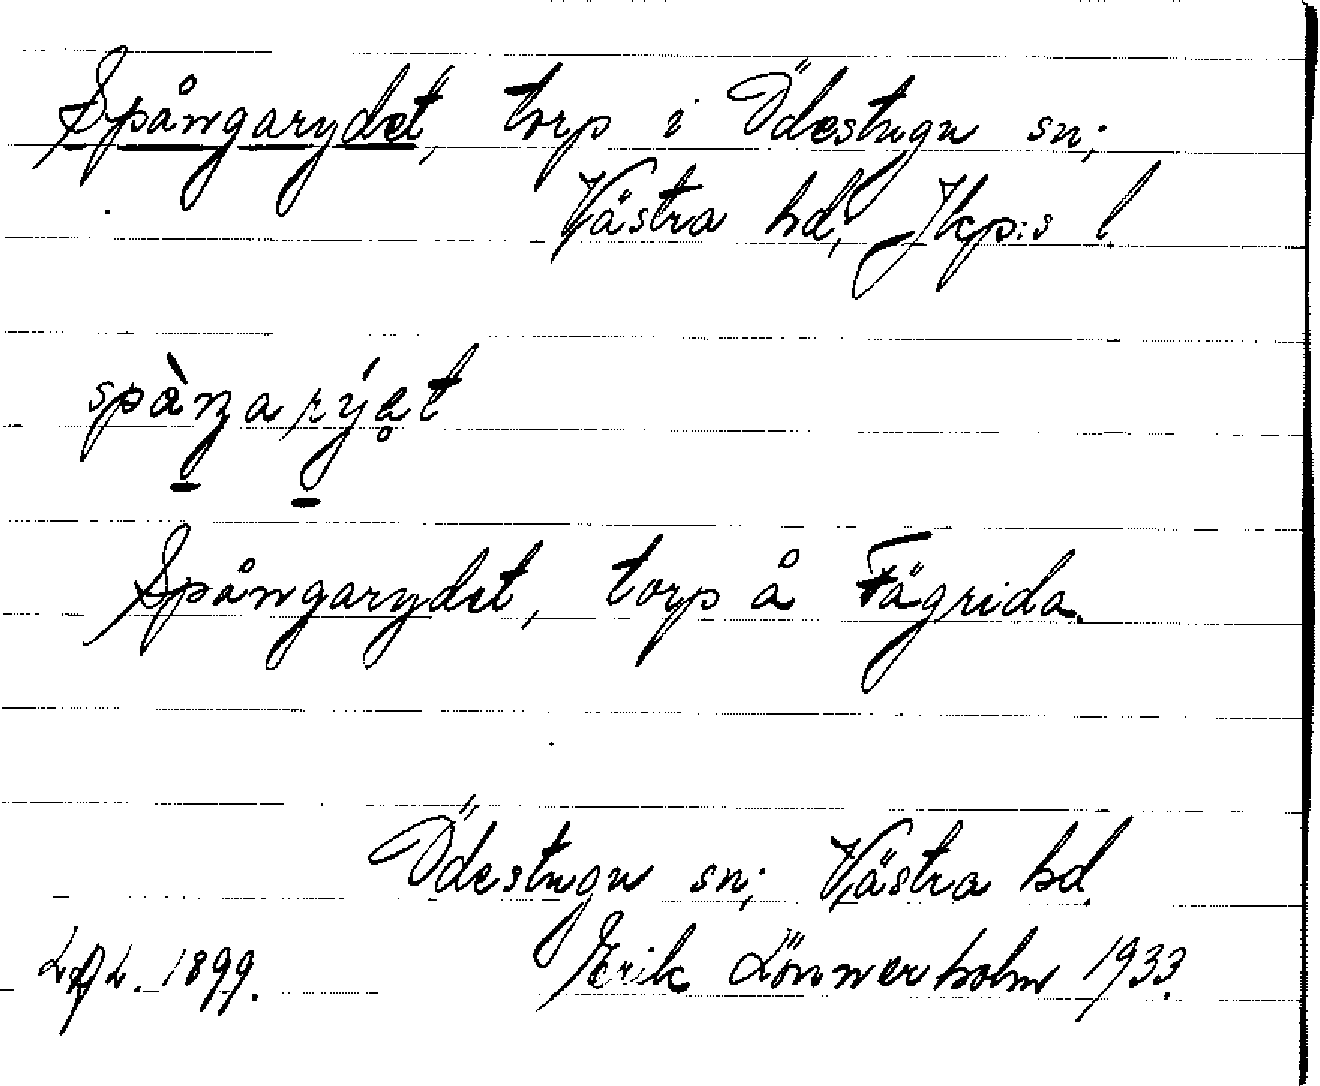 Spångarydet, torp i Ödestugu sn;
Västra hd, Jkp:s l.
Spångarydet, torp å Fägrida.
Ödestugu sn; Västra hd.
1899. Erik Lönnerholm 1933.